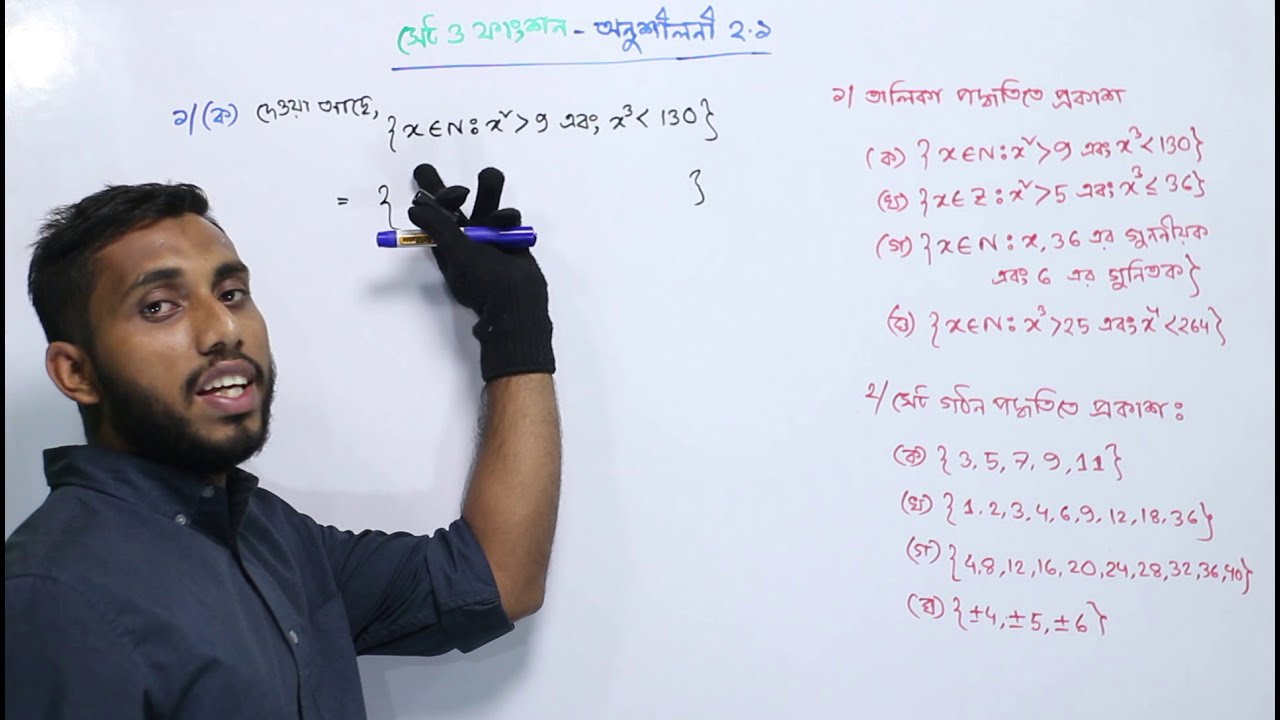 সেট ও ফাংশন - অনুশীলনী ২.১
১/(ক) দেওয়া আছে, {x∈N : x² > 9 এবং x³ < 130}
= { }
১/ তালিকা পদ্ধতিতে প্রকাশ
(ক) {x∈N : x² > 9 এবং x³ < 130}
(খ) {x∈Z : x² > 5 এবং x³ ≤ 36}
(গ) {x∈N : x, 36 এর গুননীয়ক
এবং 6 এর গুনিতক}
(ঘ) {x∈N : x³ > 25 এবং x⁴ < 264}
২/ সেট গঠন পদ্ধতিতে প্রকাশ :
(ক) {3, 5, 7, 9, 11}
(খ) {1, 2, 3, 4, 6, 9, 12, 18, 36}
(গ) {4, 8, 12, 16, 20, 24, 28, 32, 36, 40}
(ঘ) {±4, ±5, ±6}